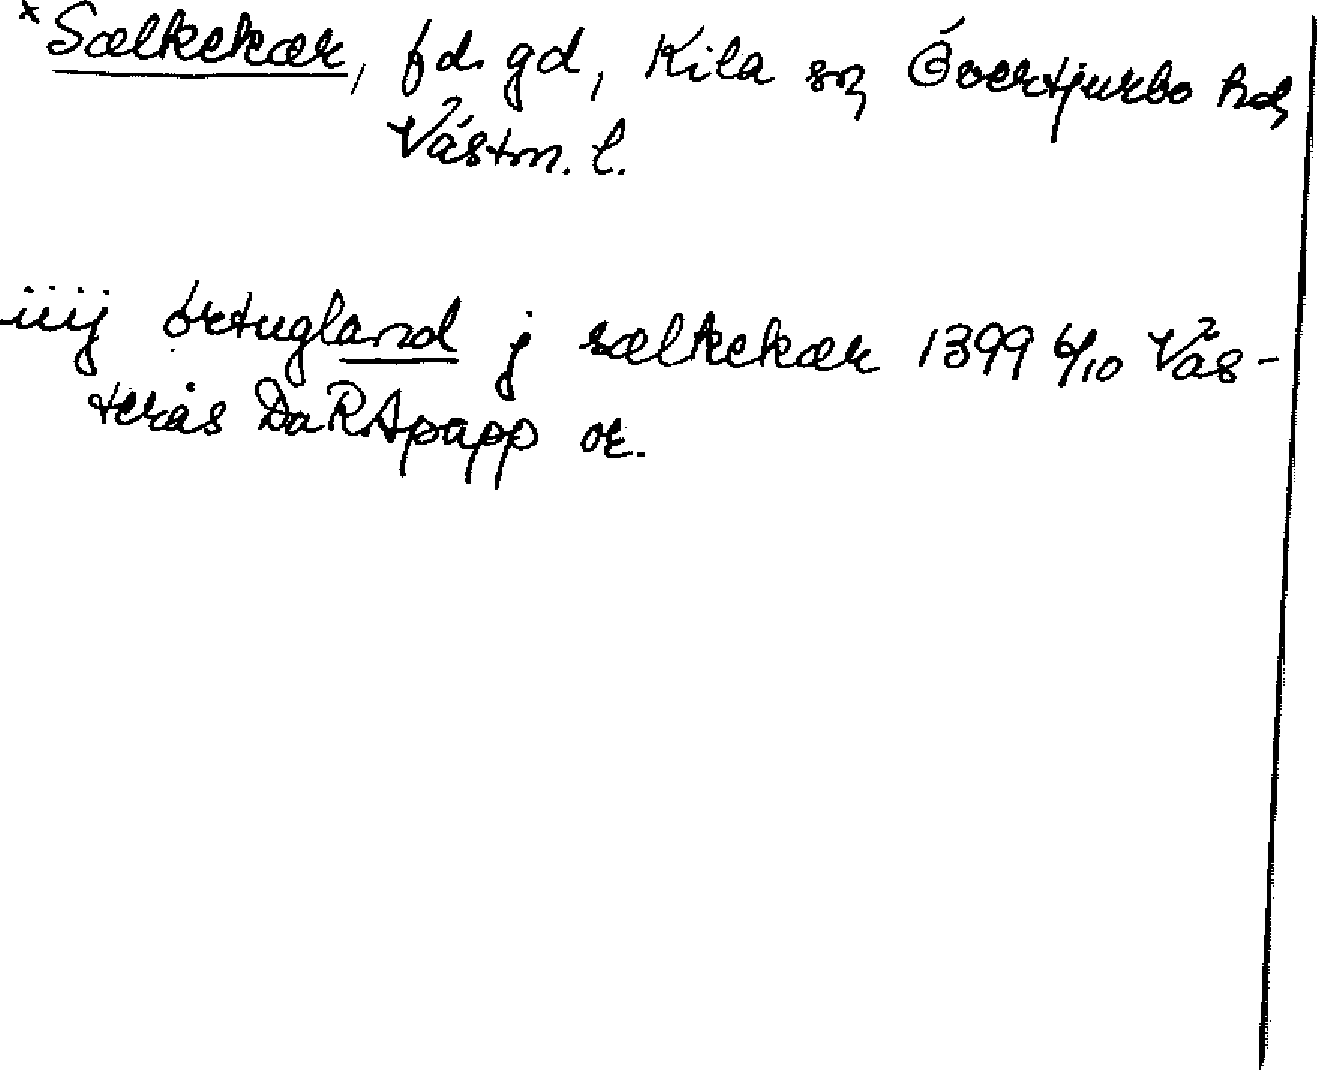 × Sælkekær, f.d. gd, Kila sn, Övertjurbo hd,
Västm. l.
iiij örtugland j sælkekær 1399 6/10 Väs-
terås Da RApapp or.